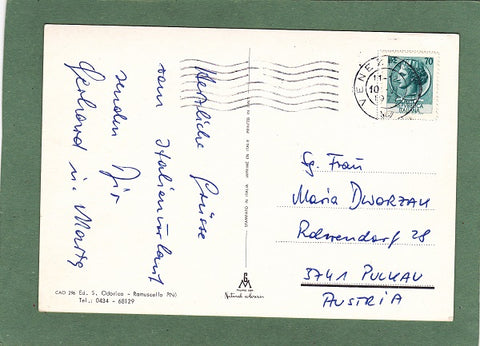 Herzliche Grüsse
vom Italienurlaub
senden Dir
Gerhard u. Marta
CAD 296 Ed. S. Odorico - Ramuscello (PN)
Tel.: 0434 - 68129
LIRE 70
VENEZIA
11-
10
Sg. Frau
Maria DWORZAK
3741 PULKAU
AUSTRIA